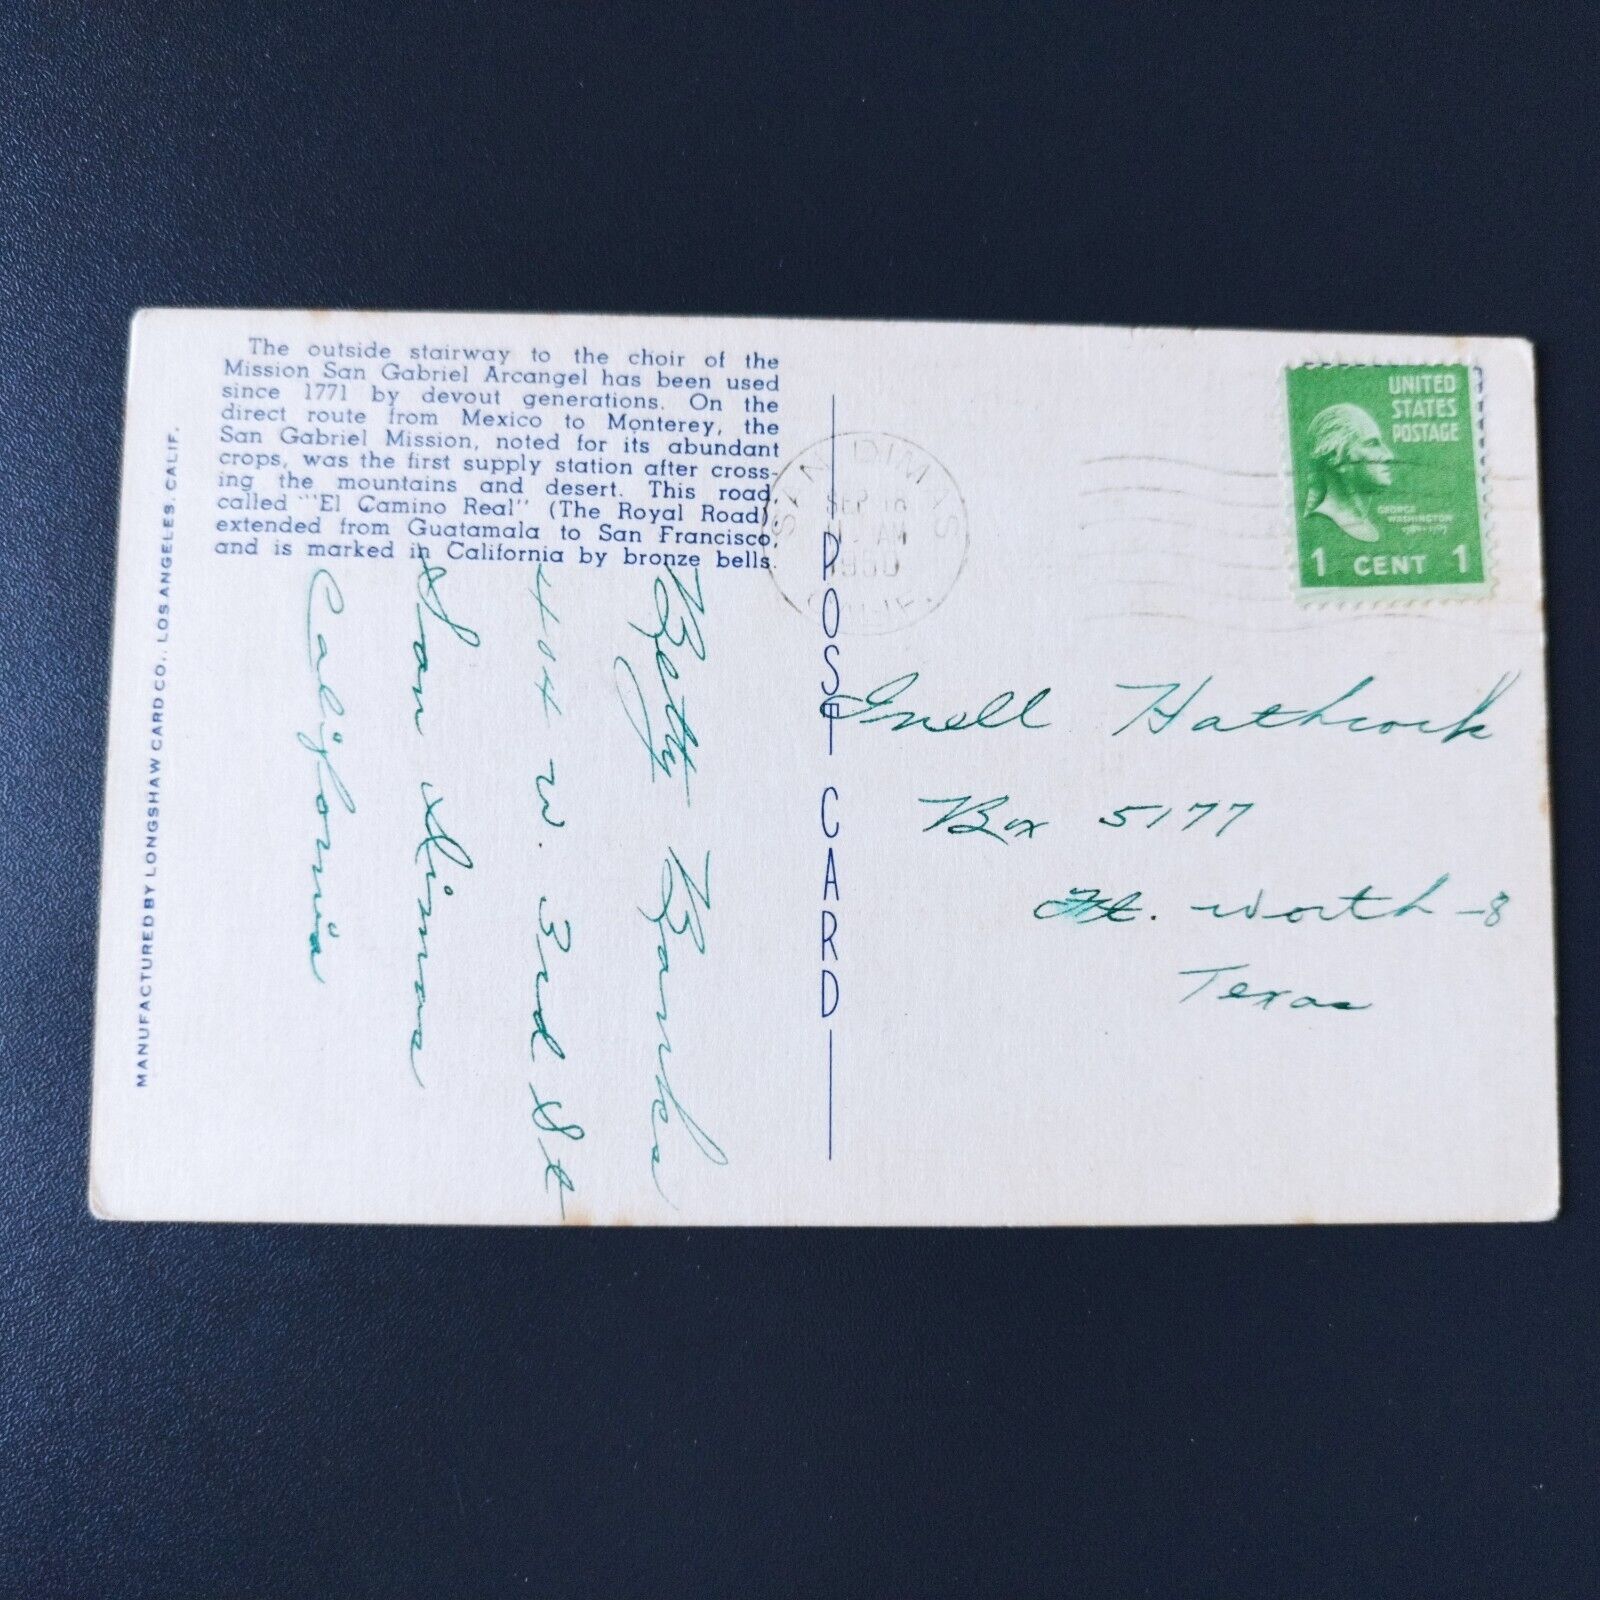 The outside stairway to the choir of the
Mission San Gabriel Arcangel has been used
since 1771 by devout generations. On the
direct route from Mexico to Monterey, the
San Gabriel Mission, noted for its abundant
crops, was the first supply station after cross-
ing the mountains and desert. This road,
called "'El Camino Real" (The Royal Road),
extended from Guatamala to San Francisco,
and is marked in California by bronze bells.
MANUFACTURED BY LONGSHAW CARD CO., LOS ANGELES, CALIF.
Betty Banks
404 W. 3rd St
San Dimas
California
POST CARD
SAN DIMAS
SEP 18
AM
1950
CALIF.
UNITED
STATES
POSTAGE
GEORGE
WASHINGTON
1789-1797
1 CENT 1
Inell Hathcock
Box 5177
Ft. Worth -8
Texas